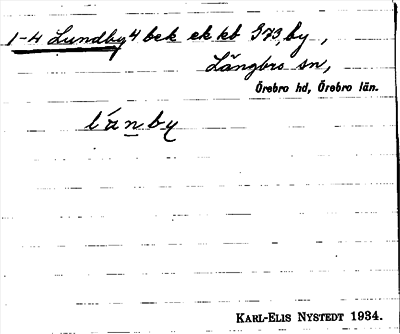 1-4 Lundby 4 bek ek kb 373, by,
Längbro sn,
Örebro hd, Örebro län.
lánby
KARL-ELIS NYSTEDT 1934.